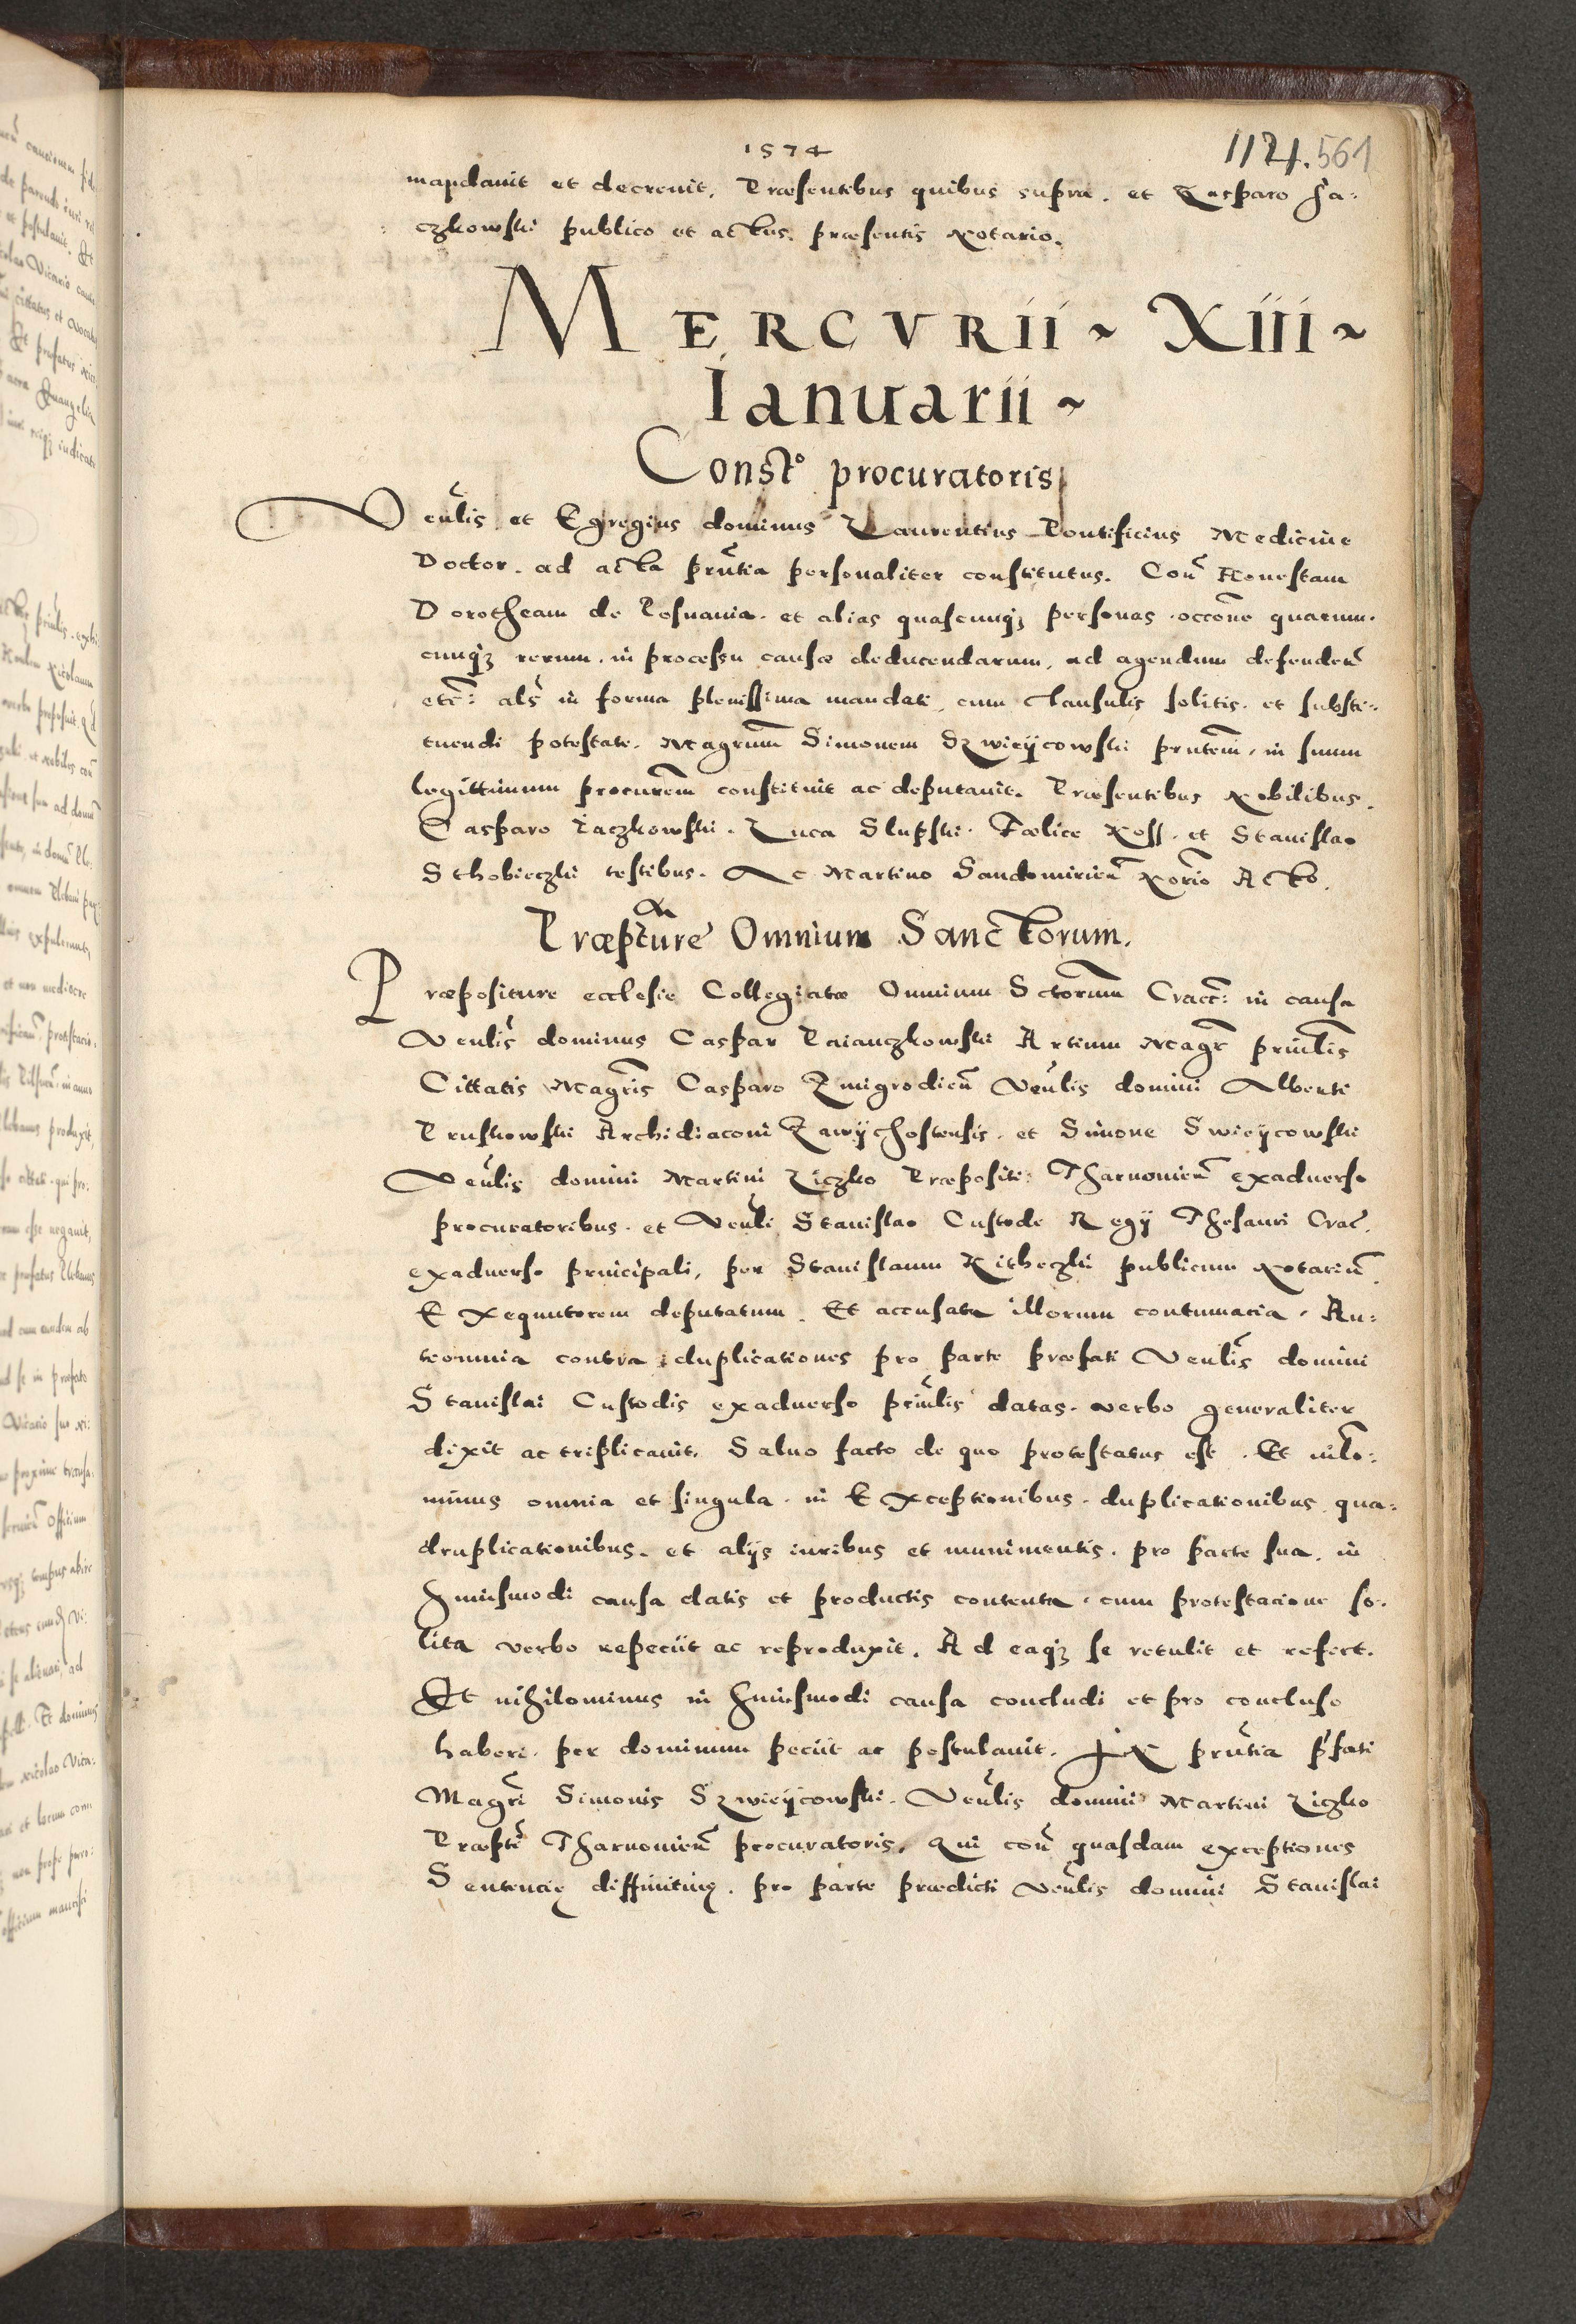 1574
1121. 561
mandavit et decrevit. Præsentibus quibus supra. et Casparo Ja:
czkowski publico et actus præsentis Notario.
MERCVRII ~ XIII ~
Ianuarii ~
Const° procuratoris
Venlis et Egregius dominus Laurentius Pontificius Medicine
Doctor. ad acta prntia personaliter constitutus. Con Honestam
Dorotheam de Posnania. et alias quascunq; personas occone quarum.
cunq; rerum. in processu causæ deducendarum, ad agendum defenden
etc: als in forma plenissima mandati, cum clausulis solitis. et substi:
tuendi potestate. Magrum Simonem Szwieÿcowski prntem, in suum
legittimum procurem constituit ac deputavit. Præsentibus Nobilibus.
Casparo Iaczkowski. Luca Slupski. Fœlice Ross. et Stanislao
Sthobieczki testibus. Ac Martino Sandomirien Norio Acto.
Præpture Omnium Sanctorum.
Præpositure ecclesie Collegiatæ Omnium Sctorum Cracc: in causa
Venlis dominus Caspar Paianczkowski Artium Magr prinlis
Cittatis Magris Casparo Zmigrodien Venlis domini Alberti
Pruskowski Archidiaconi Zawÿchostensis. et Simone Swieÿcowski
Venlis domini Martini Liczko Præpositi: Tharnovien exadverso
procuratoribus. et Venli Stanislao Custode Regÿ Thesauri Crac.
exadverso principali, per Stanislaum Kitheczki publicum Notariu
Exequutorem deputatum. Et accusata illorum contumacia. An:
teomnia contra duplicationes pro parte præfati Venlis domini
Stanislai Custodis exadverso prinlis datas. verbo generaliter
dixit ac triplicavit. Salvo facto de quo protestatus est. Et nihlo:
minus omnia et singula. in Exceptionibus. duplicationibus qua:
druplicationibus. et alÿs iuribus et munimentis. pro parte sua. in
huiusmodi causa datis et productis contenta. cum protestacione so.
lita verbo repeciit ac reproduxit. Ad eaq; se retulit et refert.
Et nihilominus in huiusmodi causa concludi et pro concluso
haberi. per dominum peciit ac postulavit. In prntia pfati
Magri Simonis Szwieÿcowski. Venlis domini Martini Liczko
Præpti Tharnovien procuratoris. Qui con quasdam exceptiones
Sentencię diffinitivę. pro parte prædicti venlis domini Stanislai